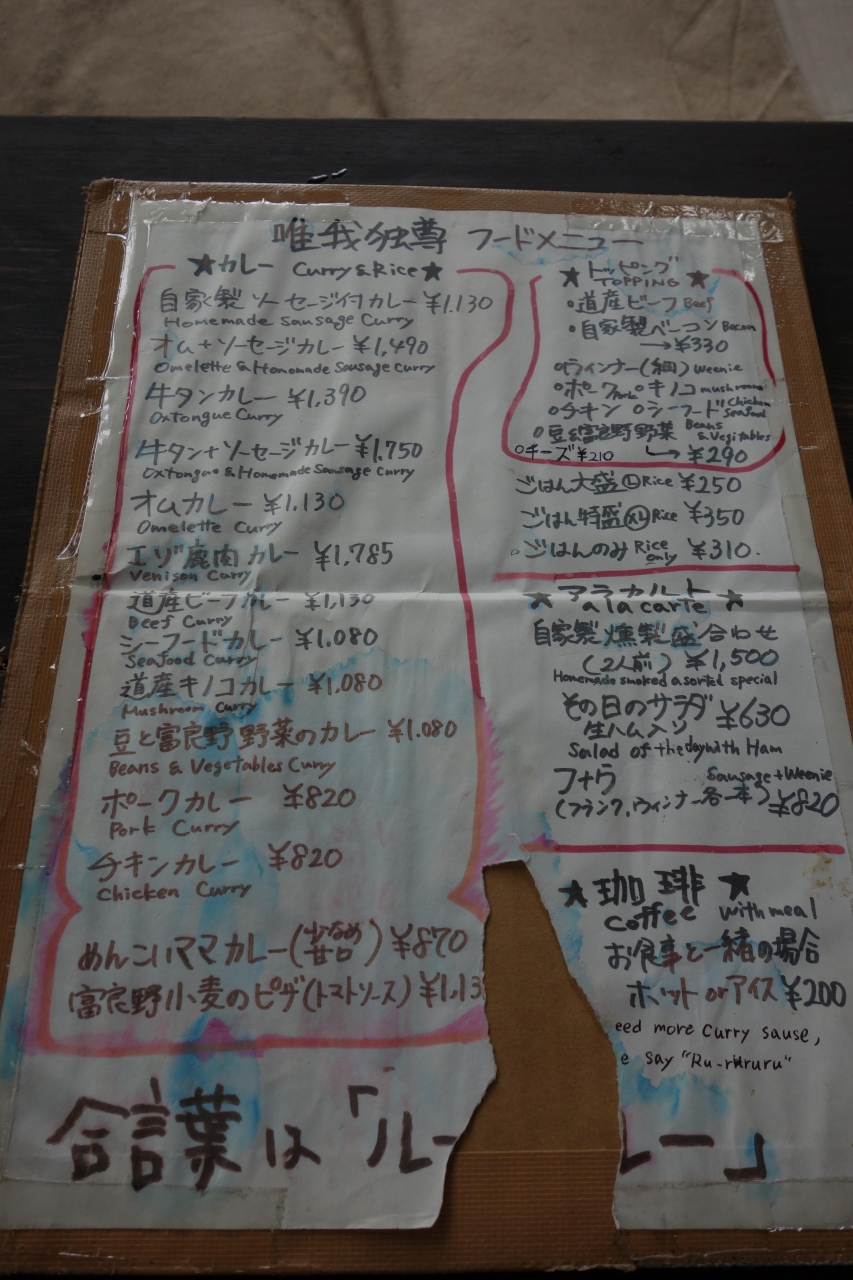 唯我独尊 フードメニュー
★カレー Curry & Rice★
自家製ソーセージ付カレー ¥1.130
Homemade Sausage Curry
オム+ソーセージカレー ¥1,490
Omelette & Homemade Sausage Curry
牛タンカレー ¥1,390
Oxtongue Curry
牛タン+ソーセージカレー ¥1,750
Oxtongue & Homemade Sausage Curry
オムカレー ¥1.130
Omelette Curry
エゾ鹿肉カレー ¥1,785
Venison Curry
道産ビーフカレー ¥1,130
Beef Curry
シーフードカレー ¥1.080
Seafood Curry
道産キノコカレー ¥1,080
Mushroom Curry
豆と富良野野菜のカレー ¥1.080
Beans & Vegetables Curry
ポークカレー ¥820
Pork Curry
チキンカレー ¥820
Chicken Curry
めんこいママカレー(少なめ 甘口) ¥870
富良野小麦のピザ(トマトソース) ¥1,13
★トッピング★
TOPPING
○道産ビーフ Beef
○自家製ベーコン Bacon
→¥330
○ウィンナー(細) Weenie
○ポーク Pork ○キノコ mushroom
○チキン Chicken ○シーフード Seafood
○豆と富良野野菜 Beans & Vegitables
○チーズ ¥210 →¥290
ごはん大盛 Ⓛ Rice ¥250
ごはん特盛 XL Rice ¥350
○ごはんのみ Rice only ¥310.
★アラカルト★
a la carte
自家製燻製盛合わせ
(2人前) ¥1,500
Homemade smoked asorted special
その日のサラダ ¥630
生ハム入り
Salad of the day with Ham
フ+ウ Sausage + Weenie
(フランク、ウィンナー各一本) ¥820
★珈琲★
Coffee with meal
お食事と一緒の場合
ホット or アイス ¥200
eed more curry sause,
e say "Ru-rururu"
合言葉は「ルー レー」